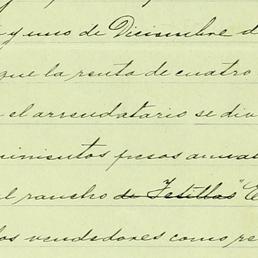 y uno de Diciembre d
que la renta de cuatro
el arrendatario se div
pesos anua
el rancho de Tetillas "E
los vendedores como re